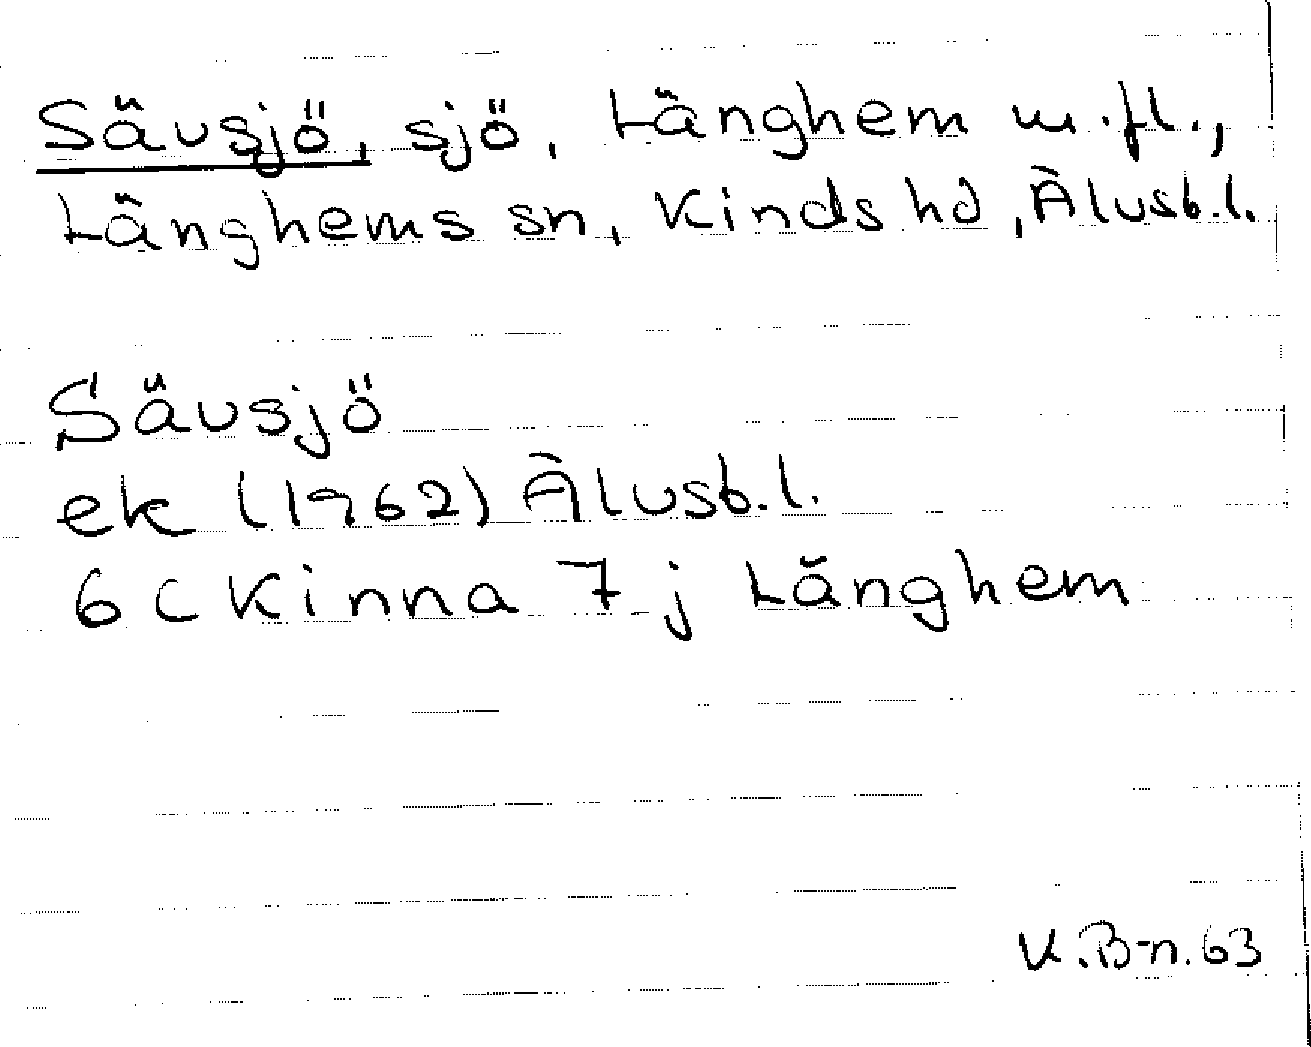 Sävsjö, sjö, Länghem m.fl.,
Länghems sn, Kinds hd, Älvsb.l.
Sävsjö
ek (1962) Älvsb.l.
6 C Kinna 7 j Länghem
K.B-n. 63